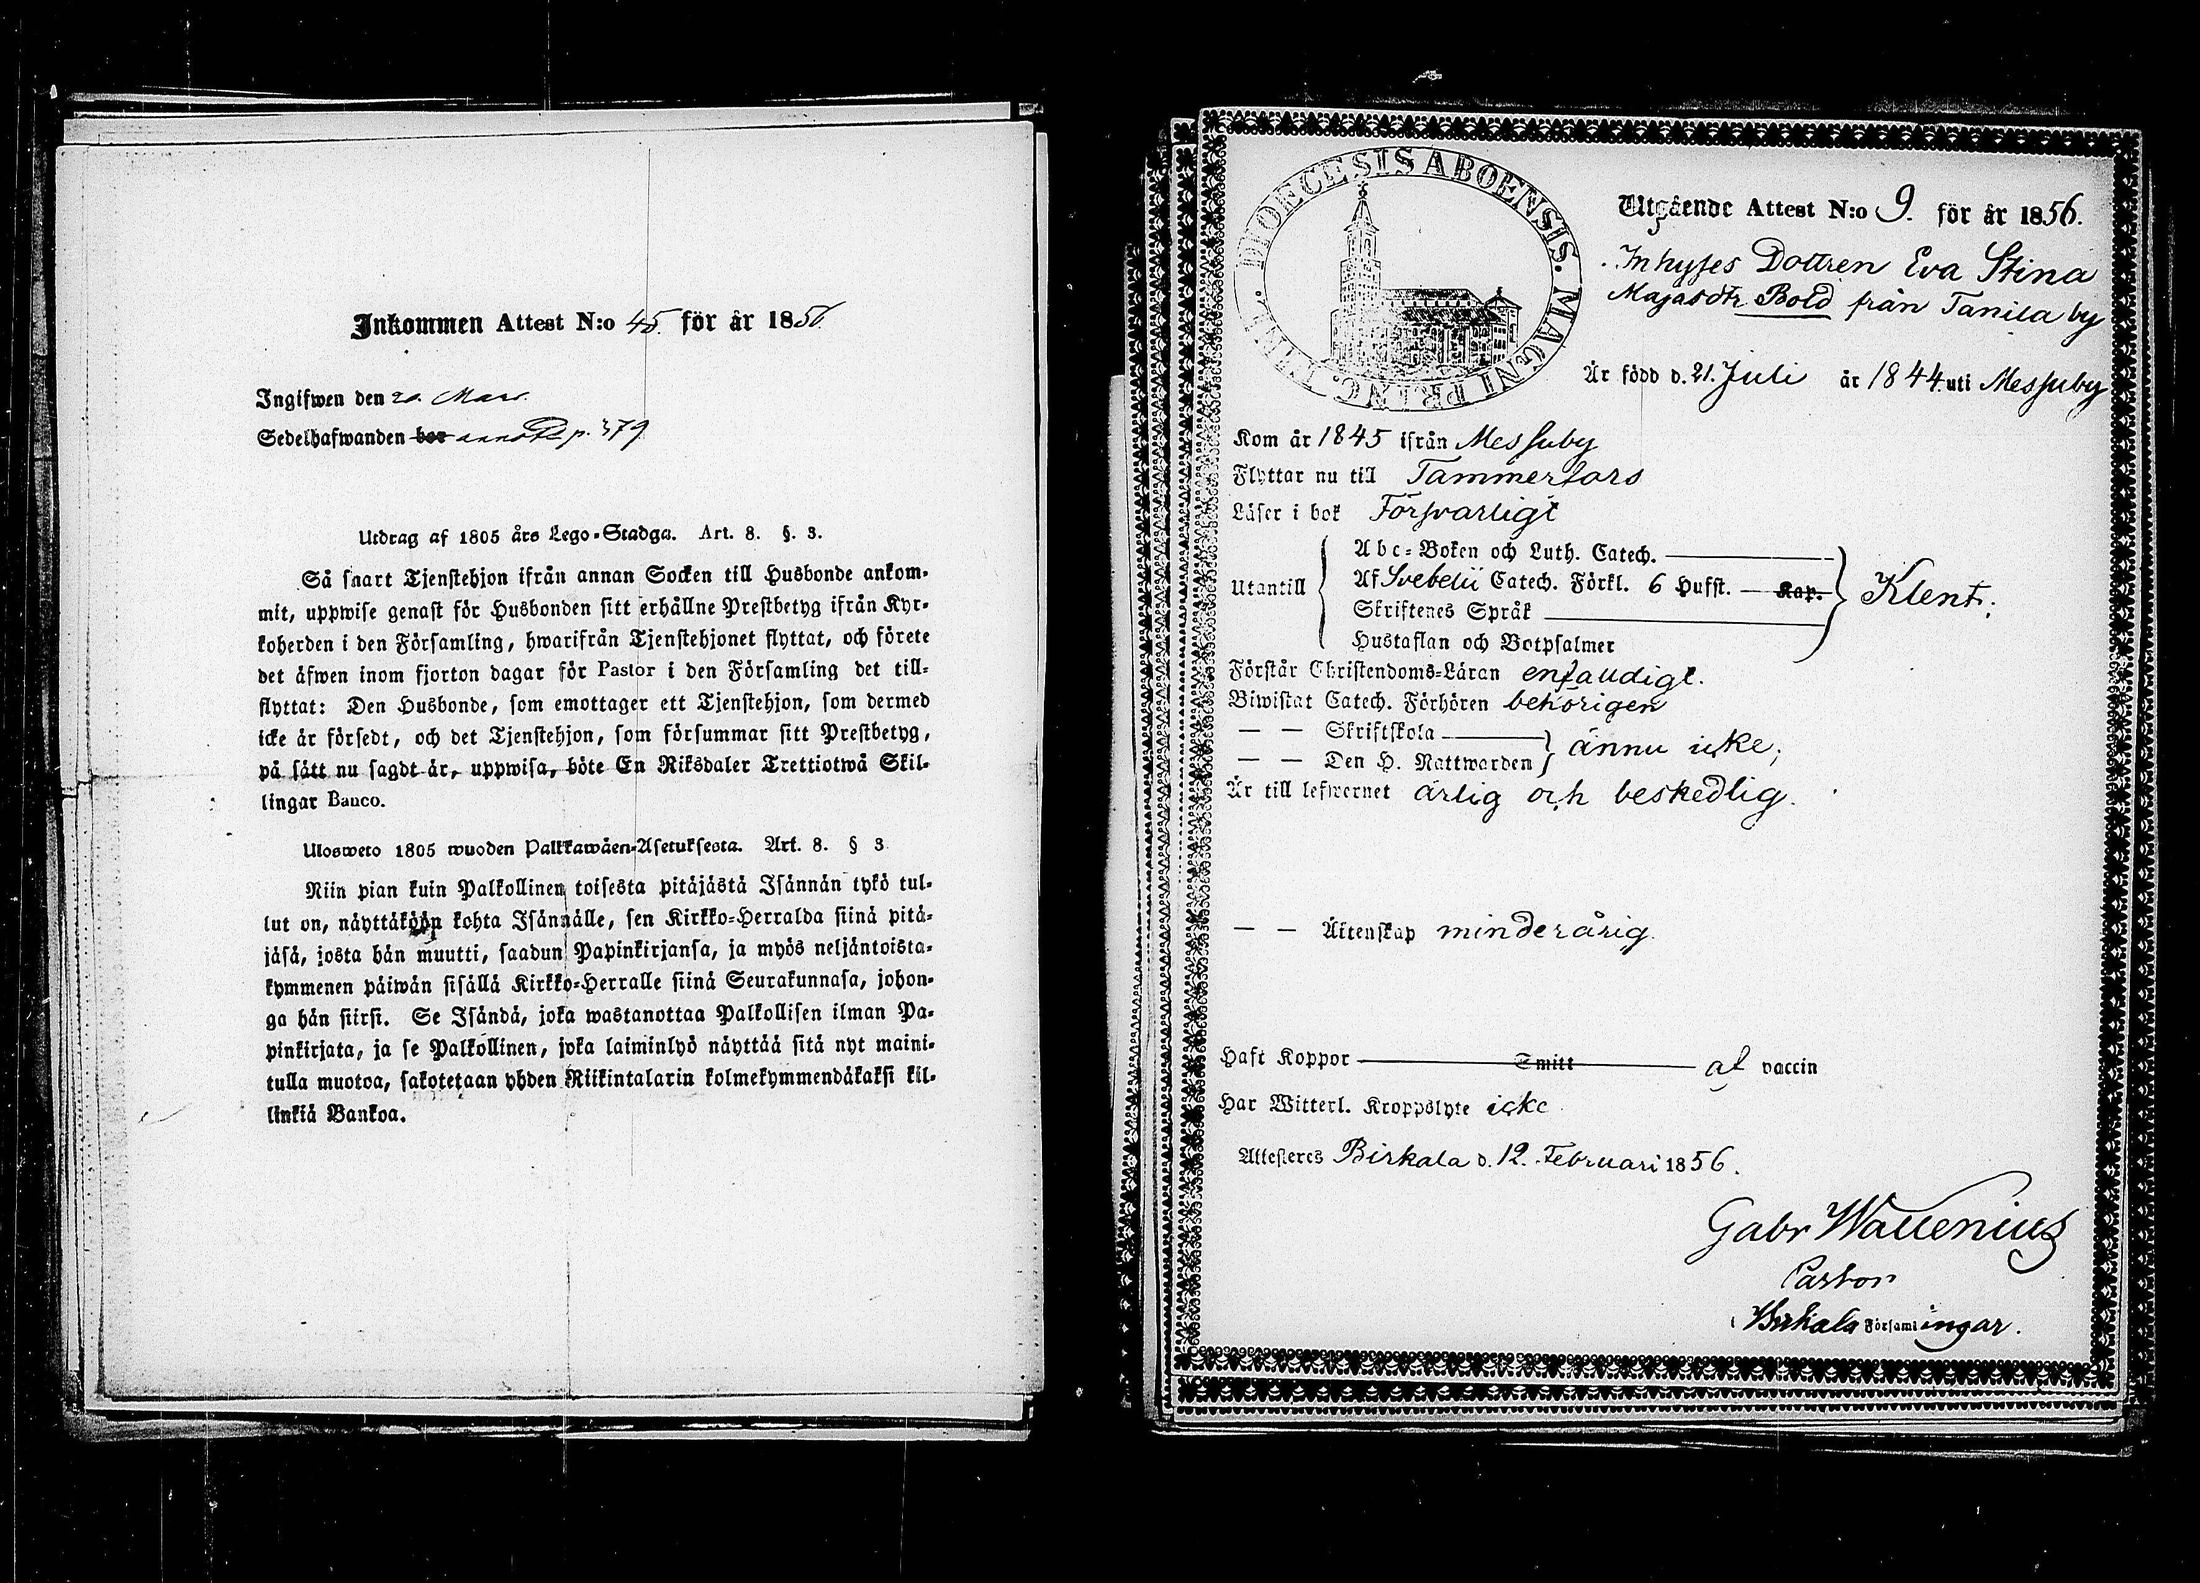 Inkommen Attest N:o 45. för år 1856
Ingifwen den 20. Mars.
Sedelhafwanden bor p. 379
Utdrag af 1805 års Lego-Stadga. Art. 8. §. 3.
Så snart Tjenstehjon ifrån annan Socken till Husbonde ankom-
mit, uppwise genast för Husbonden sitt erhållne Prestbetyg ifrån Kyr-
koherden i den Församling, hwarifrån Tjenstehjonet flyttat, och förete
det äfwen inom fjorton dagar för Pastor i den Församling det till-
flyttat: Den Husbonde, som emottager ett Tjenstehjon, som dermed
icke är försedt, och det Tjenstehjon, som försummar sitt Prestbetyg,
på sätt nu sagdt är, uppwisa, böte En Riksdaler Trettiotwå Skil-
lingar Banco.
Ulosweto 1805 wuoden Palkkawäen-Asetuksesta. Art. 8. § 3
Niin pian kuin Palkollinen toisesta pitäjästä Isännän tykö tul-
lut on, näyttäköön kohta Isännälle, sen Kirkko-Herralda siinä pitä-
jäsä, josta hän muutti, saadun Papinkirjansa, ja myös neljäntoista-
kymmenen päiwän sisällä Kirkko-Herralle siinä Seurakunnasa, johon-
ga hän siirsi. Se Isändä, joka wastanottaa Palkollisen ilman Pa-
pinkirjata, ja se Palkollinen, joka laiminlyö näyttää sitä nyt maini-
tulla muotoa, sakotetaan yhden Riikintalarin kolmekymmendäkaksi kil-
linkiä Bankoa.
DIOECESIS ABOENSIS. MAGNI PRINC. FINL.
Utgående Attest N:o 9. för år 1856.
Inhyses Dottren Eva Stina
Majasdtr Bold från Tanila by
Är född d. 21. Juli år 1844. uti Messuby
Kom år 1845 ifrån Messuby
Flyttar nu till Tammerfors
Läser i bok Försvarligt
Utantill
Abc-Boken och Luth. Catech.
Af Svebelii Catech. Förkl. 6 Hufst. Kap.
Skriftenes Språk
Hustaflan och Botpsalmer
Klent;
Förstår Christendoms-Läran enfaldigt.
Biwistat Catech. Förhören behörigen
— — Skriftskola
— — Den H. Nattwarden
ännu icke;
Är till lefwernet ärlig och beskedlig.
— — Äktenskap minderårig.
Haft Koppor Smitt af vaccin
Har Witterl. Kroppslyte icke
Attesteres Birkala d. 12. Februari 1856.
Gabr Wallenius
Pastor
Birkala Församlingar.